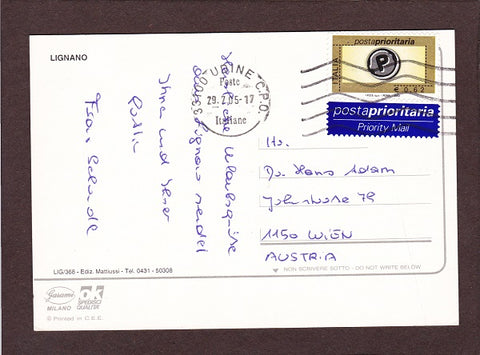 LIGNANO
Herzliche Urlaubsgrüße
aus Lignano sendet
Ihna und Ihrer
Franz
UDINE C.P.O.
Poste
29.7.05-17
Italiane
33100
postaprioritaria
ITALIA
P
€ 0,62
postaprioritaria
Priority Mail
Hr.
Dr. Hans Adam
79
1150 WIEN
AUSTRIA
NON SCRIVERE SOTTO - DO NOT WRITE BELOW
LIG/368 - Ediz. Mattiussi - Tel. 0431 - 50308
MILANO
© Printed in C.E.E.